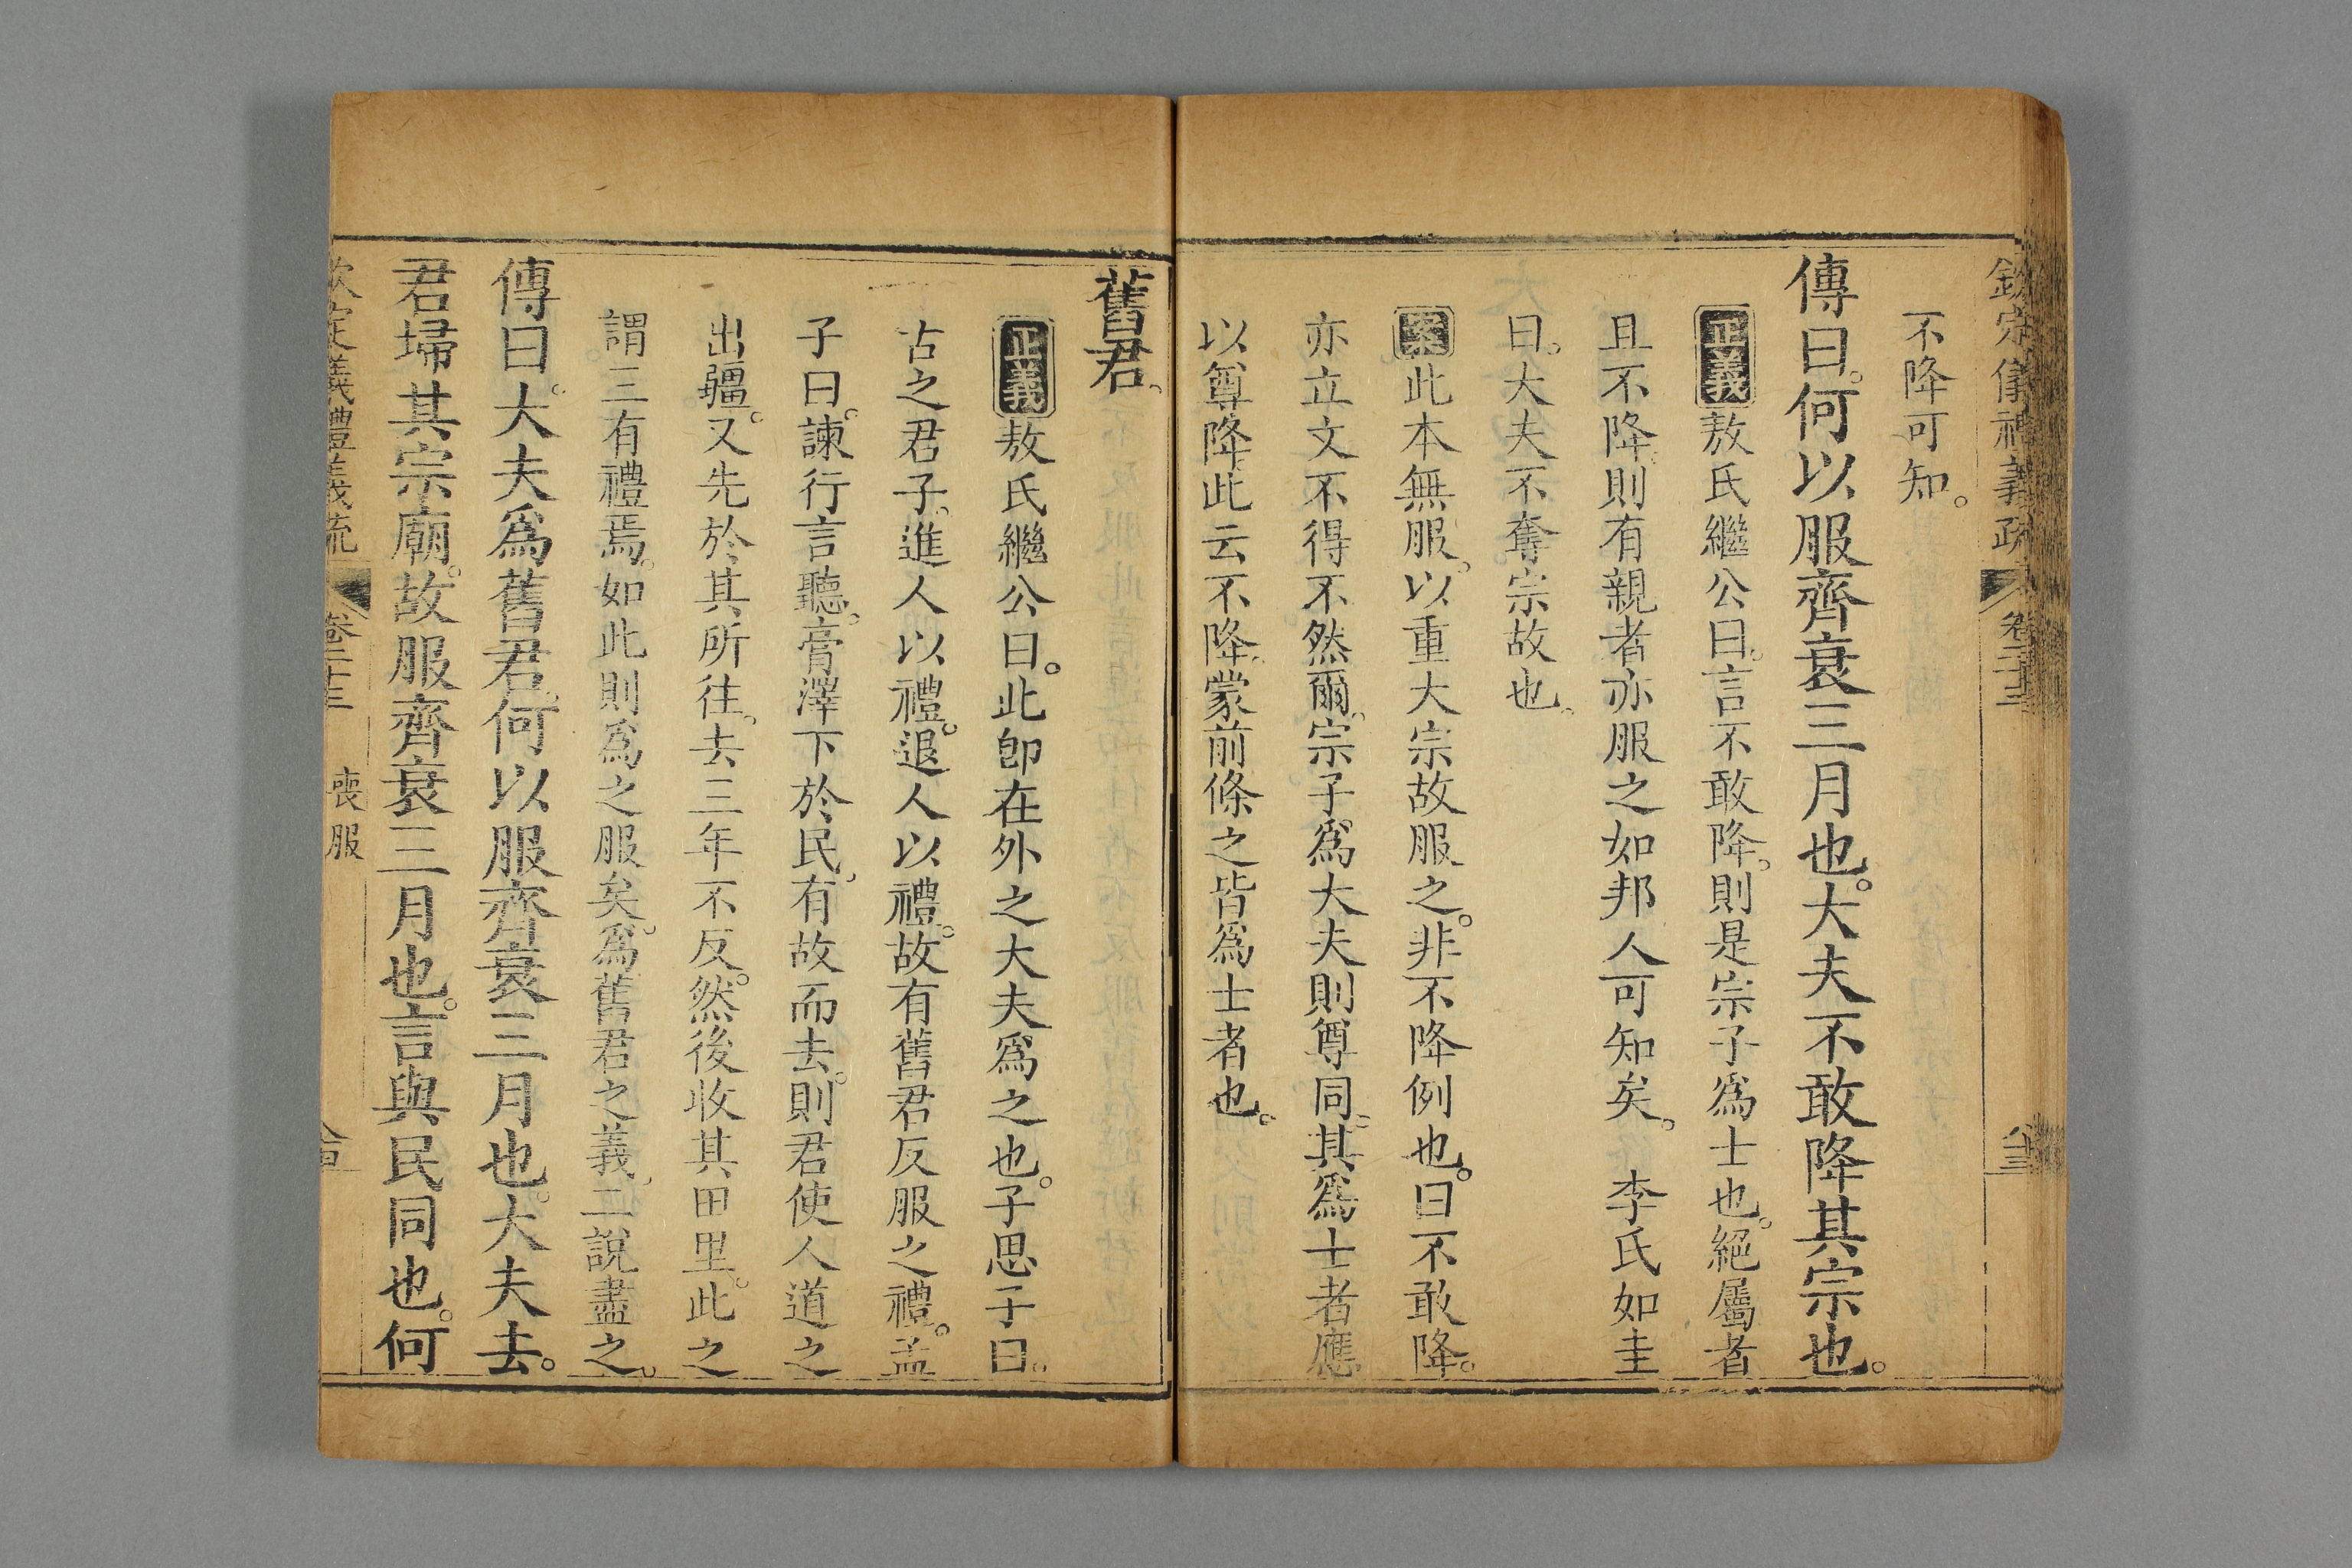 欽定儀禮義疏 卷二十三
不降可知。
傳曰。何以服齊衰三月也。大夫不敢降其宗也。
正義敖氏繼公曰。言不敢降。則是宗子爲士也。絕屬者
且不降。則有親者亦服之如邦人可知矣。 李氏如圭
曰。大夫不奪宗故也。
案此本無服。以重大宗故服之。非不降例也。曰不敢降。
亦立文不得不然爾。宗子爲大夫則尊同。其爲士者應
以尊降。此云不降。蒙前條之皆爲士者也。
舊君、
正義敖氏繼公曰。此卽在外之大夫爲之也。子思子曰。
古之君子。進人以禮。退人以禮。故有舊君反服之禮。孟
子曰。諫行言聽。膏澤下於民。有故而去。則君使人道之
出疆。又先於其所往。去三年不反。然後收其田里。此之
謂三有禮焉。如此則爲之服矣。爲舊君之義。二說盡之。
傳曰。大夫爲舊君。何以服齊衰三月也。大夫去。
君埽其宗廟。故服齊衰三月也。言與民同也。何
欽定義禮義疏 卷二十三 喪服